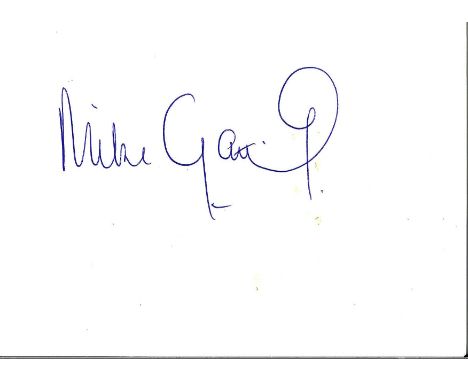 Mike Gatting